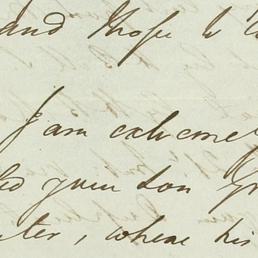 and I hope to
I am extreme
ed your son
ter, where his